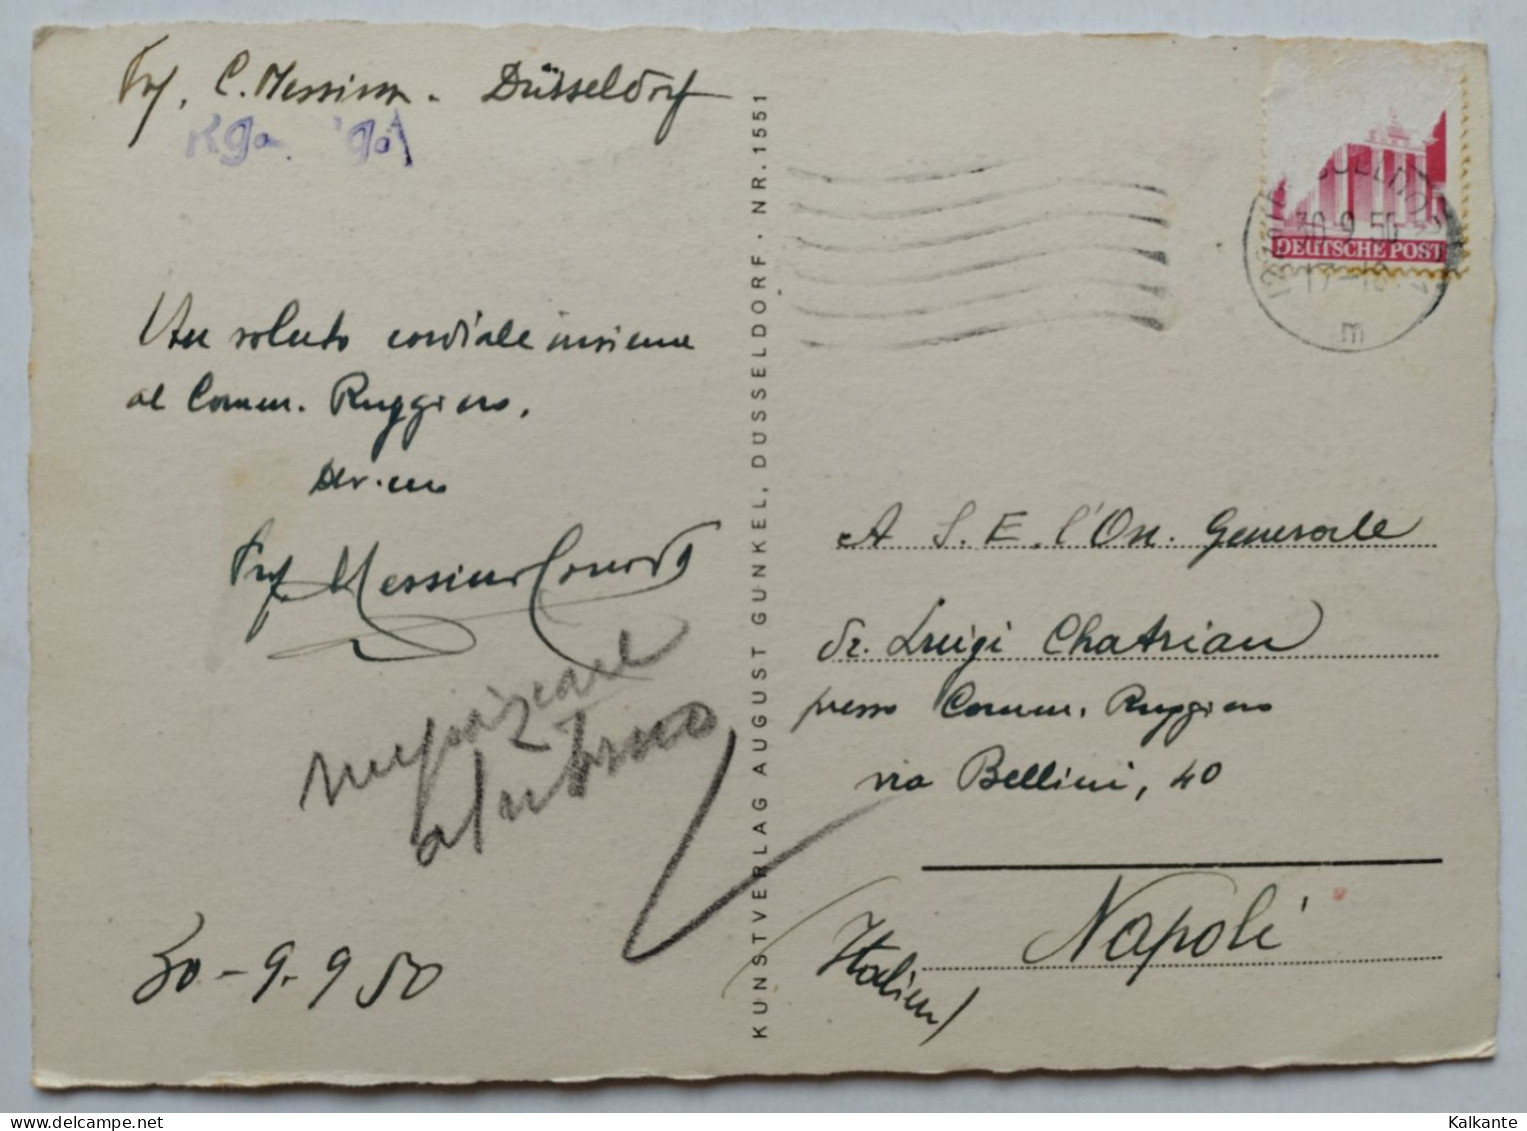 Prof. C. Messina. Düsseldorf
Un saluto cordiale insieme
al Comm. Ruggiero.
Dev.mo
Prof. Messina
30-9-950
KUNSTVERLAG AUGUST GUNKEL, DUSSELDORF · NR. 1551
DEUTSCHE POST
30-9.50
m
A S. E. l'On. Generale
dr. Luigi Chatrian
presso Comm. Ruggiero
via Bellini, 40
Napoli
Italien
Kalkante